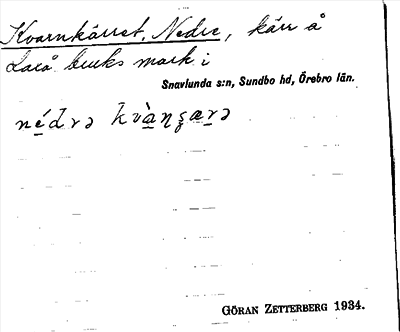 Kvarnkärret, Nedre, kärr å
Laxå bruks mark i
Snavlunda s:n, Sundbo hd, Örebro län.
nédrə kvàɳʂærə
GÖRAN ZETTERBERG 1934.